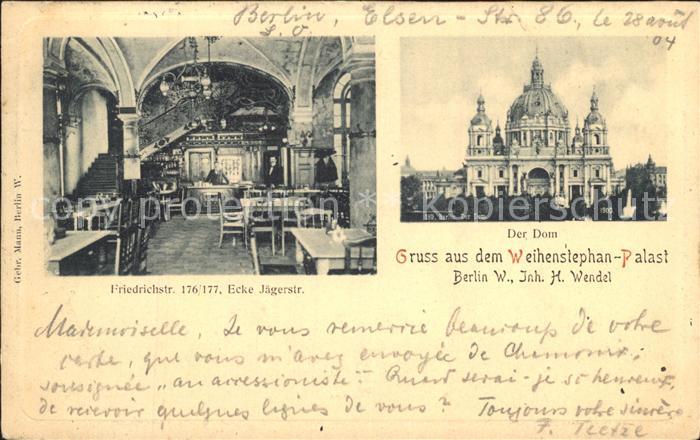 Berlin, Elsen-Str. 86, le 28 août
S. O. 04
Gebr. Mann, Berlin W.
Friedrichstr. 176/177, Ecke Jägerstr.
Der Dom
Gruss aus dem Weihenstephan-Palast
Berlin W., Inh. H. Wendel
Mademoiselle, Je vous remercie beaucoup de votre
carte, que vous m'avez envoyée de Chamonix,
soussignée „an
Quand serai-je si heureux,
de recevoir quelques lignes de vous? Toujours votre sincère
F.